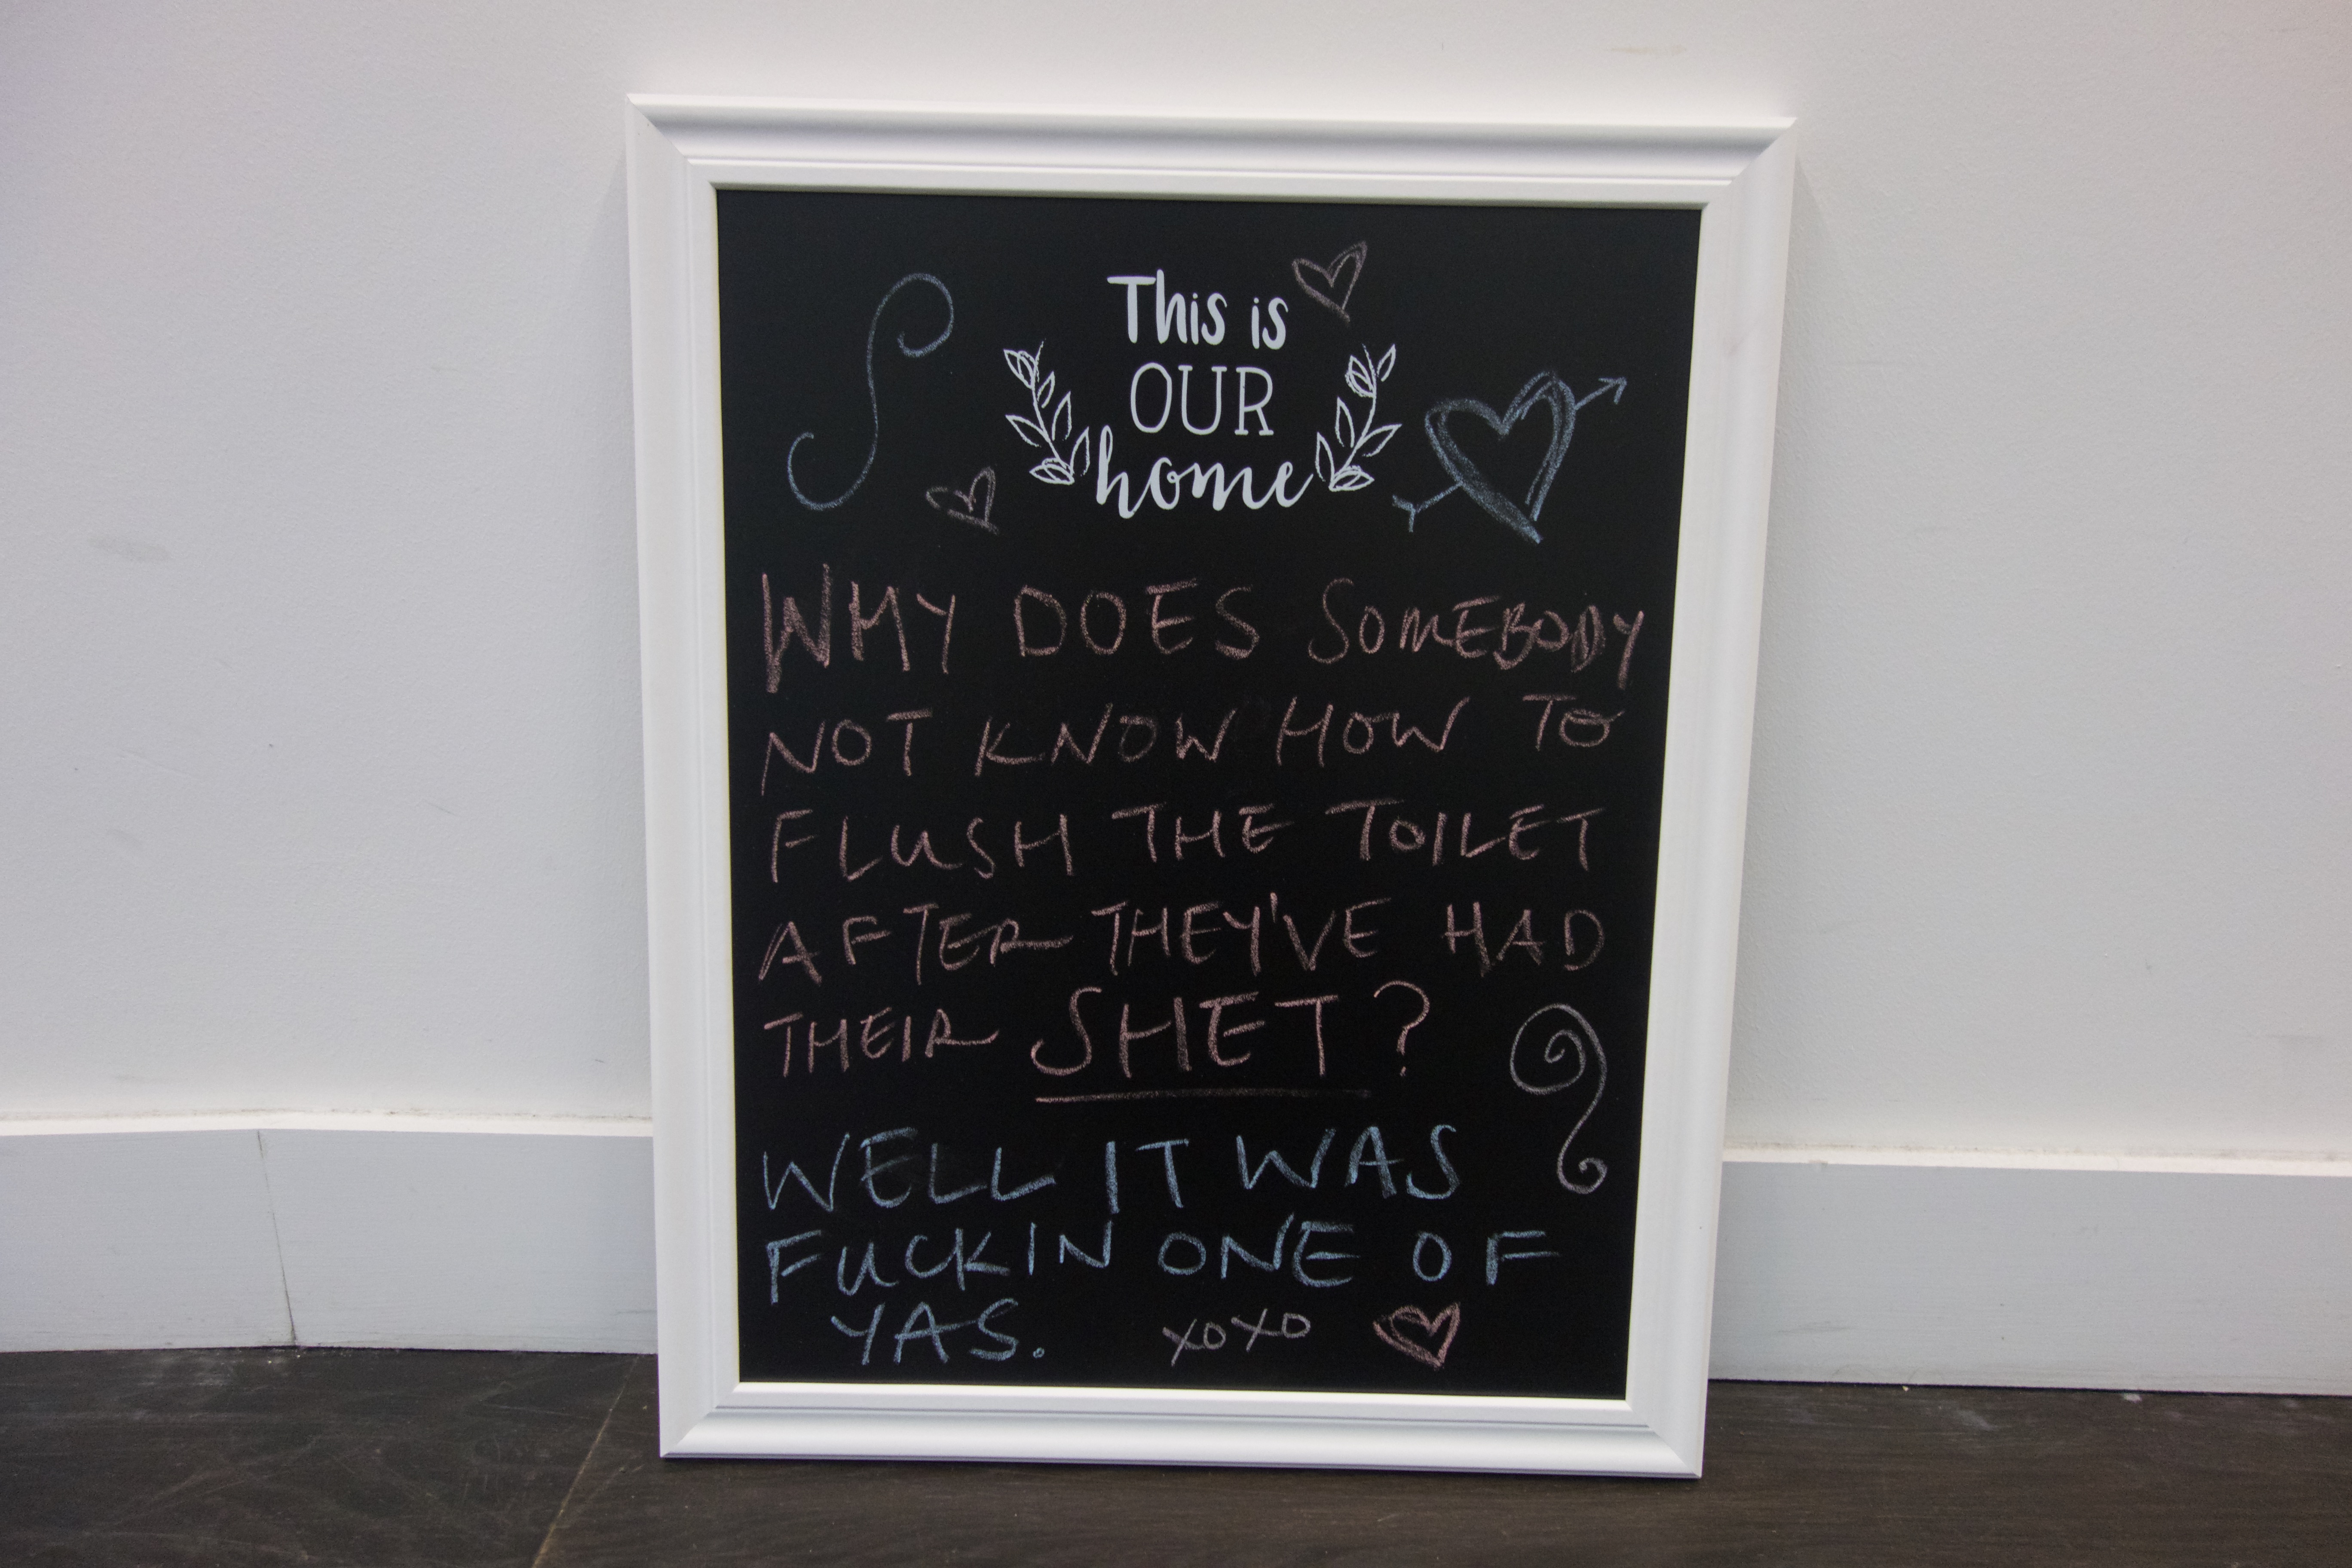 This is
OUR
home
WHY DOES SOMEBODY
NOT KNOW HOW TO
FLUSH THE TOILET
AFTER THEY'VE HAD
THEIR SHET?
WELL IT WAS
FUCKIN ONE OF
YAS. XOXO